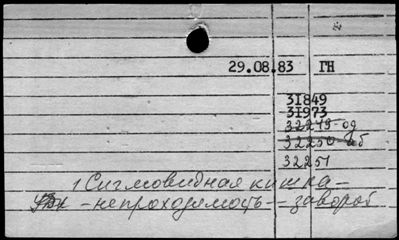 29.08.83 ГН
31849
31973
32249-од
32250-иб
32251
1 Сигмовидная кишка -
- непроходимость - заворот